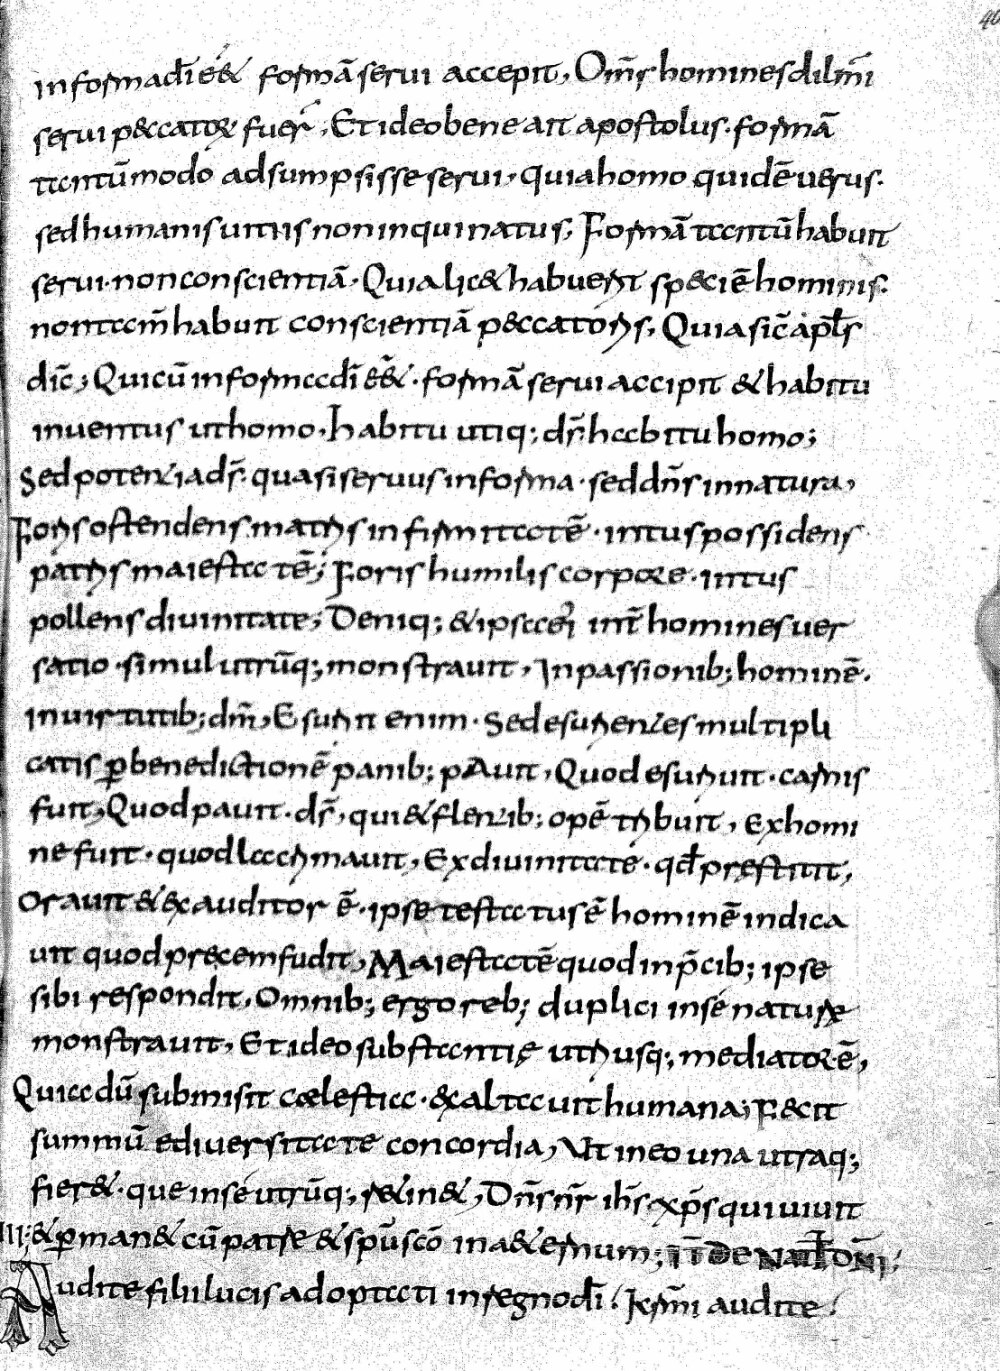 in forma dī eét formā serui accepit, Om̄s homines dil m̄i
serui peccatoꝝ fuer̄, Et ideo bene ait apostolus. formā
tantū modo adsumpsisse serui, quia homo quidē uerus.
sed humanis uitiis non inquinatus; Formā tantū habuit
serui. non conscientiā. Quia licet habuerit speciē hominis.
non tam̄ habuit conscientiā peccatoris, Quia sic̄ apl̄s
dic̄; Quicū in forma dī eēt. formā serui accipit et habitu
inuentus ut homo. Habitu utiq; dr̄ habitu homo;
Sed potentia dr̄. quasi seruus in forma. sed dn̄s in natura,
Foris ostendens matris infirmitatē. intus possidens
patris maiestatē; Foris humilis corpore. intus
pollens diuinitate; Deniq; et ipsa ei int̄ homines uer
satio. simul utrūq; monstrauit, In passionib; hominē.
in uirtutib; dm̄, Esuriit enim. Sed esurientes multipli
catis ꝑ benedictionē panib; pauit, Quod esuriuit. carnis
fuit, Quod pauit. dr̄, qui et flentib; opē tribuit, Ex homi
ne fuit. quod lacrimauit, Ex diuinitate. qd̄ prestitit,
Orauit et exauditor ē. ipse testatus ē hominē indica
uit quod precem fudit, Maiestatē quod in p̄cib; ipse
sibi respondit, Omnib; ergo reb; duplici in se naturæ
monstrauit, Et ideo substantię utriusq; mediator ē,
Qui ad ū submisit cælestia. exaltauit humana; Fecit
summū e diuersitate concordia, Ut in eo una utraq;
fieret. que in se utrūq; retinet, Dn̄s nr̄ ih̄s xp̄s qui uiuit
et ꝑmanet cū patre et spū scō in aeternum; IT DE NAT DN̄I;
III; Audite filii lucis adoptati in regno dī! Km̄i audite!